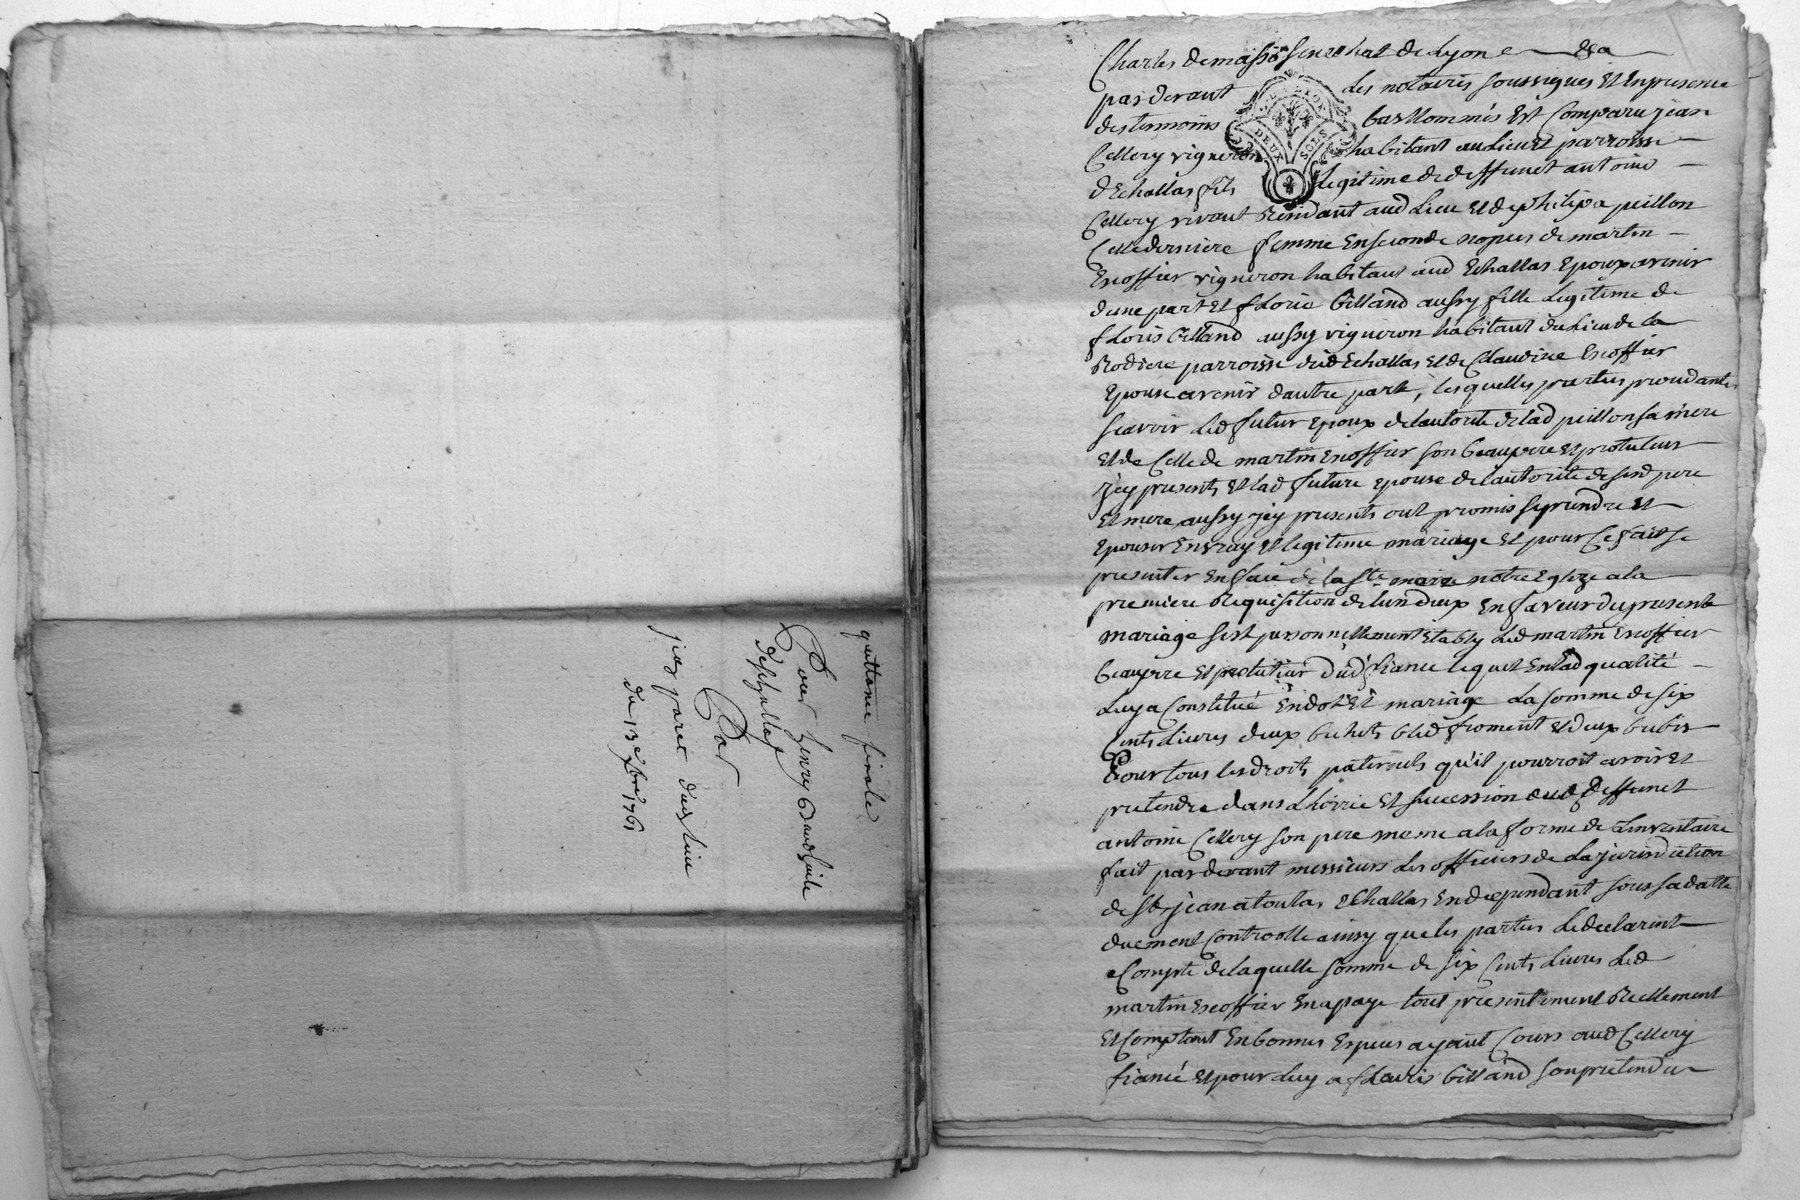 quittance finale
Pour henry Baud
deschallas
Par
jean
du 13e xbre 1761
Charles de masso senechal de Lyon &a
par devant les notaires soussignes Et En presence
des temmoins bas Nommés Est Comparu jean
Cellery vigneron habitant audlieu Et parroisse
d'Echallas fils legitime de deffunct antoine
Cellery vivant Residant aud Lieu Et de philipa peillon
Cette derniere femme En seconde nopces de martin
Escoffier vigneron habitant aud Echallas Epoux avenir
dune part Et florie billand aussy fille Legitime de
floris billand aussy vigneron habitant du Lieu de la
Rodiere parroisse dud Echallas Et de Claudine Escoffier
Epouse avenir dautre part, lesquelles parties procedantes
scavoir Led futur Epoux de lautorite de lad peillon sa mere
Et de Celle de martin Escoffier son beaupere Et protuteur
jcy presents Et lad future Epouse de lautorite de sesd pere
Et mere aussy jcy presents ont promis se prendre Et
Epouser En vray Et legitime mariage Et pour Ce fait se
presenter En face de la Ste mere notre Eglize a la
premiere Requisition de lun deux En faveur du present
mariage sest personnellement Etably Led martin Escoffier
beaupere Et protuteur dud fiancé lequel En lad qualité
Luy a Constitué En dot Et mariage La somme de six
Cents Livres deux bichets bled froment Et deux brebis
Pour tous les droits paternels qu'il pourroit avoir Et
pretendre dans Lhoirie Et succession dud deffunct
antoine Cellery son pere meme a la forme de Linventaire
fait par devant messieurs Les officiers de La jurisdiction
de St jean a toulas Echallas En dependant sous sa datte
duement Controolle ainsy que les parties Le declarent
a Compte de laquelle somme de six Cents Livres Led
martin Escoffier En a paye tout presentement Reellement
Et Comptant En bonnes Especes ayant Cours aud Cellery
fiancé Et pour Luy a fleuris billand son pretendu
DEUX SOLS